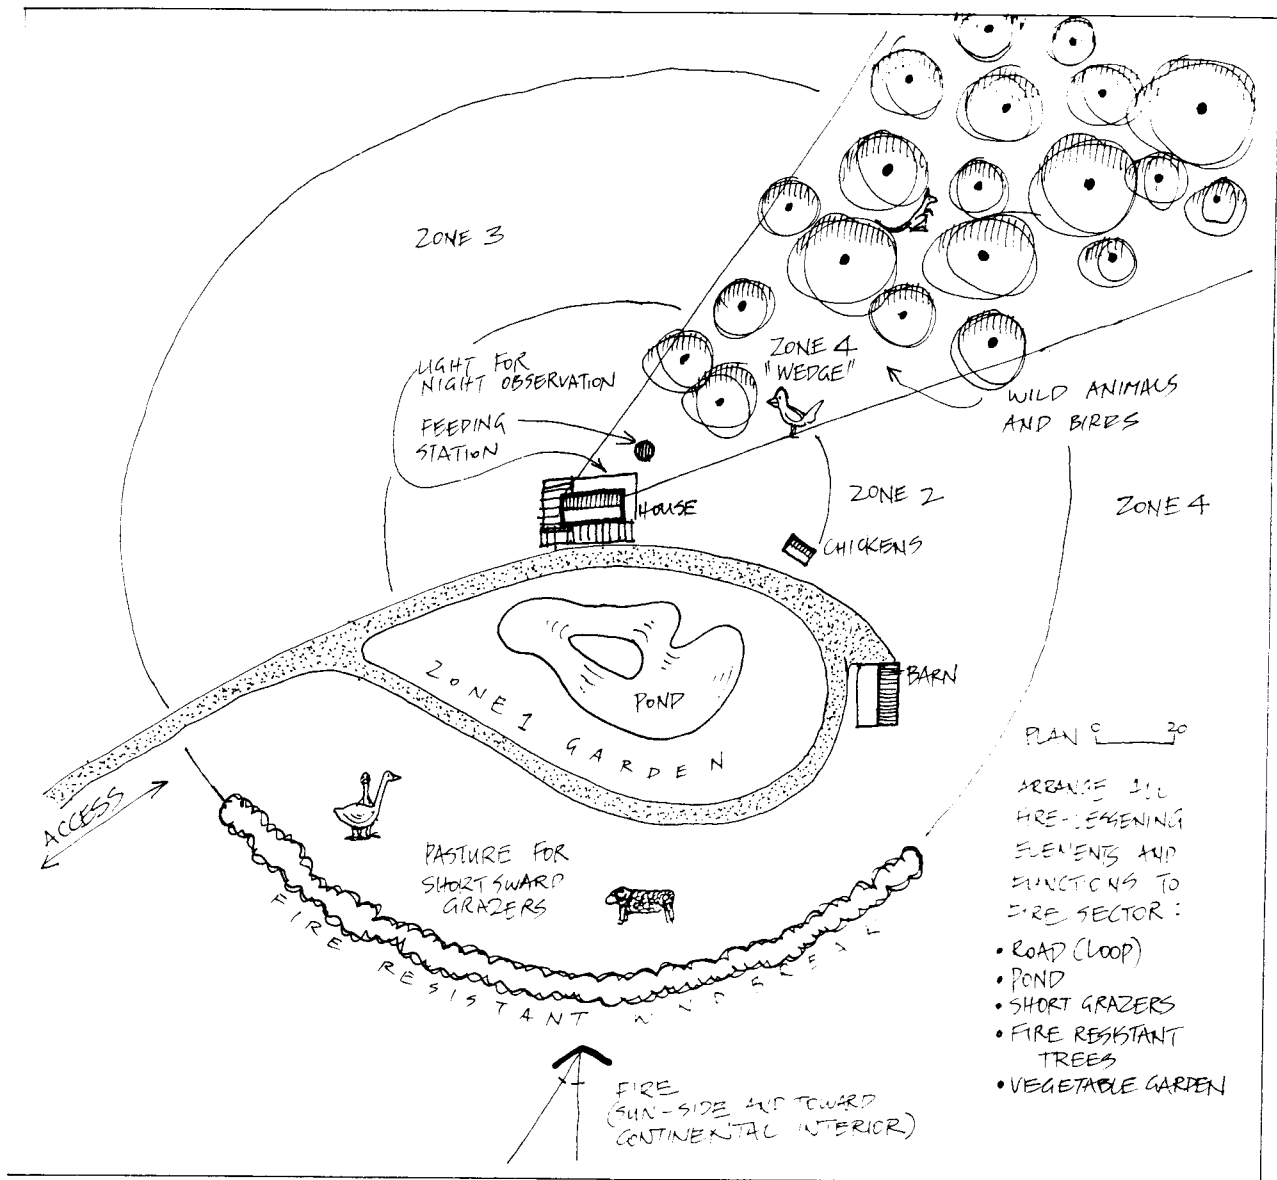 ZONE 3
LIGHT FOR
NIGHT OBSERVATION
FEEDING
STATION
ZONE 4
"WEDGE"
WILD ANIMALS
AND BIRDS
HOUSE
ZONE 2
ZONE 4
CHICKENS
ZONE 1 GARDEN
POND
BARN
ACCESS
PASTURE FOR
SHORT SWARD
GRAZERS
FIRE RESISTANT WINDBREAK
FIRE
(SUN-SIDE AND TOWARD
CONTINENTAL INTERIOR)
PLAN 0 20
ARRANGE ALL
FIRE-LESSENING
ELEMENTS AND
FUNCTIONS TO
FIRE SECTOR:
• ROAD (LOOP)
• POND
• SHORT GRAZERS
• FIRE RESISTANT
TREES
• VEGETABLE GARDEN